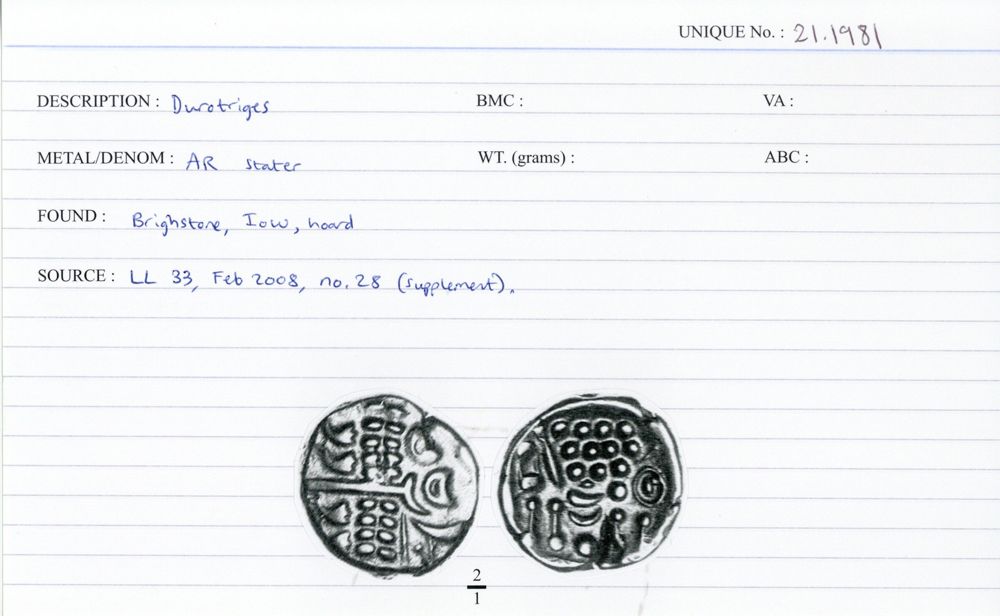 UNIQUE No. : 21.1981
DESCRIPTION : Durotriges BMC : VA :
METAL/DENOM : AR stater WT. (grams) : ABC :
FOUND : Brighstone, IOW, hoard
SOURCE : LL 33, Feb 2008, no. 28 (supplement).
2
1